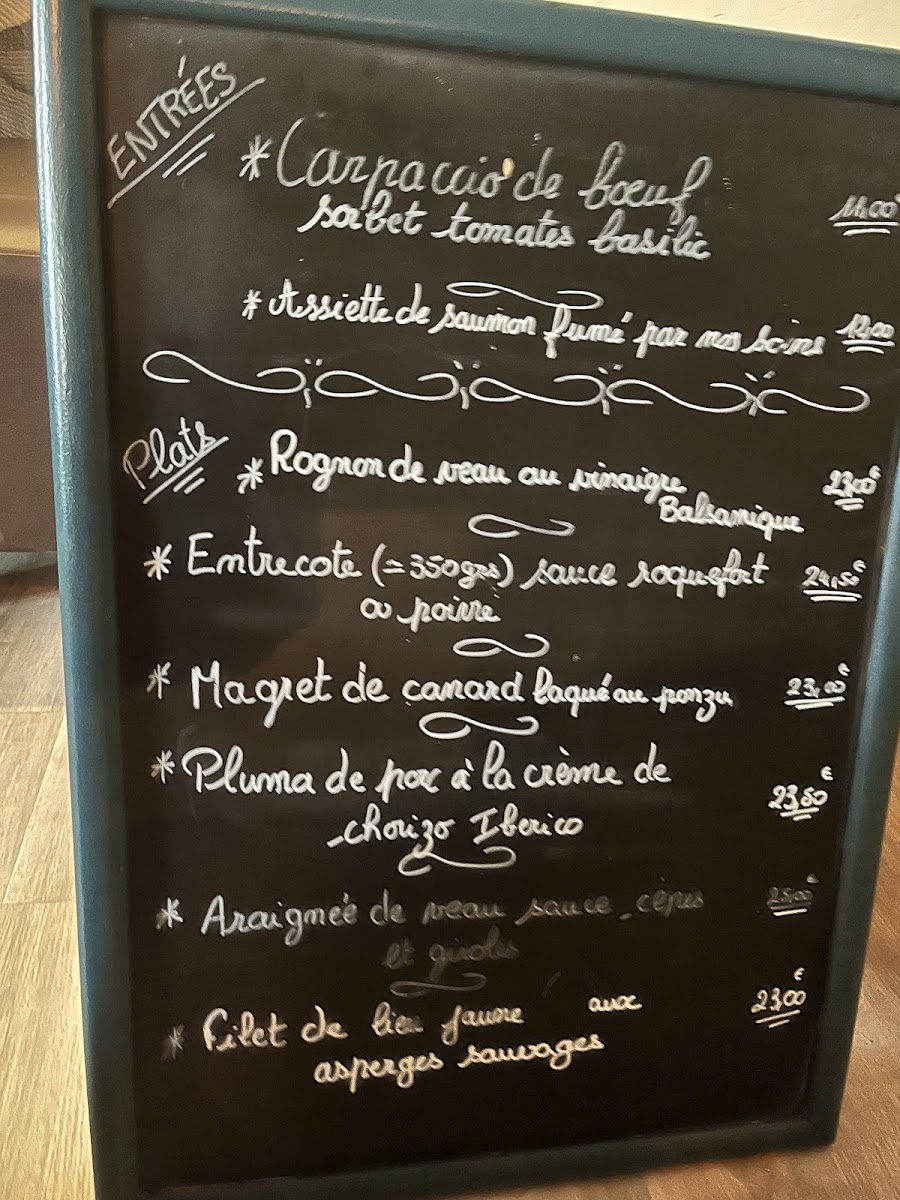 ENTRÉES
*Carpaccio de bœuf
sorbet tomates basilic
*Assiette de saumon fumé par nos soins 12,00
Plats
*Rognon de veau au vinaigre 23,00€
Balsamique
*Entrecote (=350grs) sauce roquefort 24,50€
ou poivre
*Magret de canard laqué au ponzu 23,00€
*Pluma de porc à la crème de
chorizo Iberico 23,50€
*Araignée de veau sauce cèpes
et girolles
*Filet de lieu jaune aux 23,00€
asperges sauvages